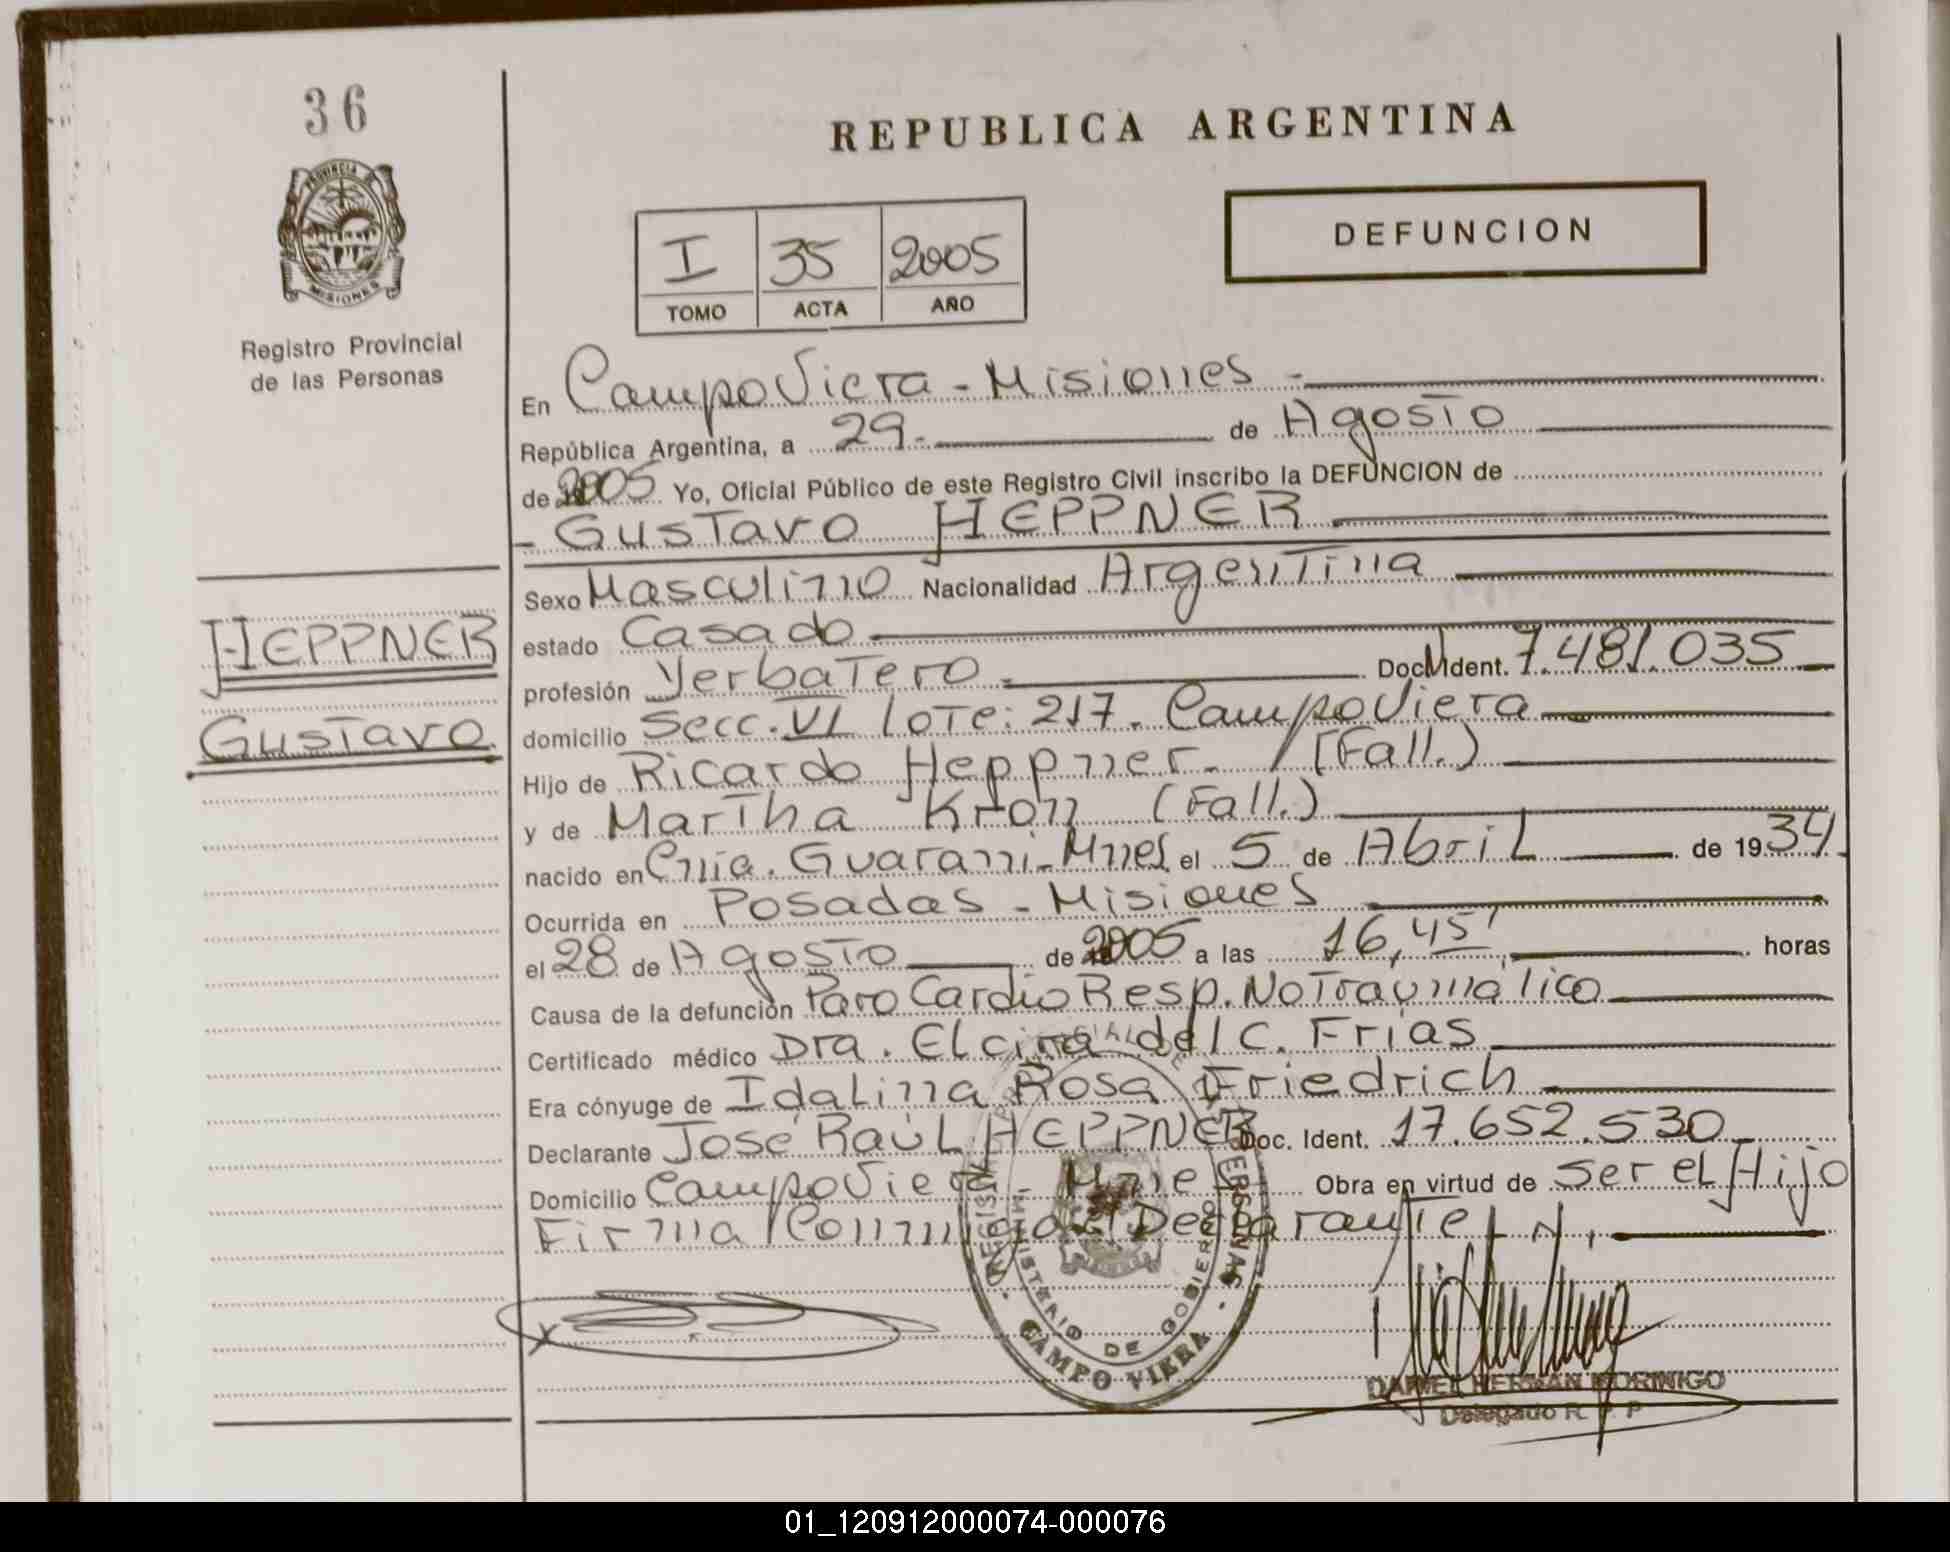 36
PROVINCIA DE
MISIONES
Registro Provincial
de las Personas
REPUBLICA ARGENTINA
I 35 2005
TOMO ACTA AÑO
DEFUNCION
En Campo Viera - Misiones -
República Argentina, a 29. de Agosto
de 2005 Yo, Oficial Público de este Registro Civil inscribo la DEFUNCION de
- GUSTAVO HEPPNER
HEPPNER
Gustavo
Sexo Masculino Nacionalidad Argentina
estado Casado
profesión Yerbatero - Doc. Ident. 7.481.035
domicilio Secc. VI lote: 217. Campo Viera
Hijo de Ricardo Heppner. / (Fall.)
y de Martha Kron (Fall.)
nacido en Cnia. Guarani - Mnes el 5 de Abril de 1934
Ocurrida en Posadas - Misiones
el 28 de Agosto de 2005 a las 16,45' horas
Causa de la defunción Paro Cardio Resp. No Traumático
Certificado médico Dra. Elcira del C. Frías
Era cónyuge de Idalina Rosa Friedrich
Declarante José Raúl HEPPNER Doc. Ident. 17.652.530
Domicilio Campo Viera - Mnes Obra en virtud de Ser el Hijo
Firma Conmigo el Declarante
MINISTERIO DE GOBIERNO
CAMPO VIERA
DANIEL HERNAN MORINIGO
Delegado R. P. P
01_120912000074-000076